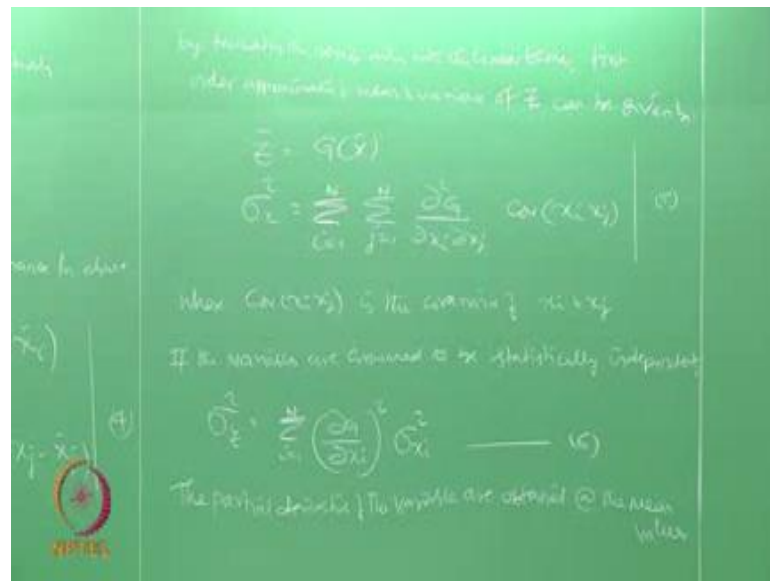 by truncating the series only with the linear terms, first
order approximate mean & variance of Z can be given by
z̄ = G(x̄)
σ_z² = Σ_{i=1}^{N} Σ_{j=1}^{N} ∂²G/∂x_i∂x_j Cov(x_i x_j) (5)
where Cov(x_i x_j) is the covariance of x_i & x_j
If the variables are assumed to be statistically independent
σ_z² = Σ^{N} (∂G/∂x_i)² σ_{x_i}² —— (6)
The partial derivative of the variable are obtained @ the mean
values
(4)
NPTEL